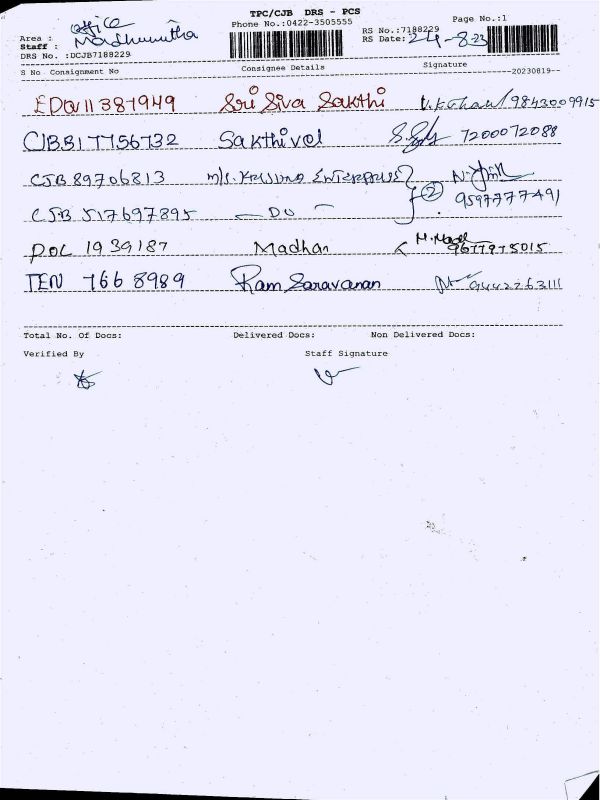 TPC/CJB DRS - PCS
Phone No.:0422-3505555
Page No.:1
Area : office
Staff : Madhumitha
RS No.:7188229
RS Date: 24-8-23
DRS No. :DCJB7188229
S No Consignment No Consignee Details Signature
--20230819--
EDQ11381949 Sri Siva Sakthi 9843009915
CJBB17756732 Sakthivel 7200072088
CJB 89706813 M/s. Krisuna Enterprises
CJB 517697895 — DO — } (2) 9597777491
POL 1939187 Madhan 9677975015
TEN 766 8989 Ram Saravanan 9442263111
Total No. Of Docs: Delivered Docs: Non Delivered Docs:
Verified By Staff Signature